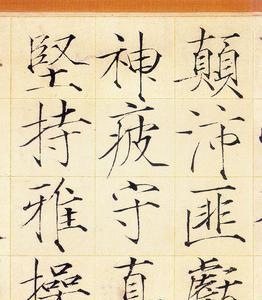 顛沛匪虧
神疲守真
堅持雅操